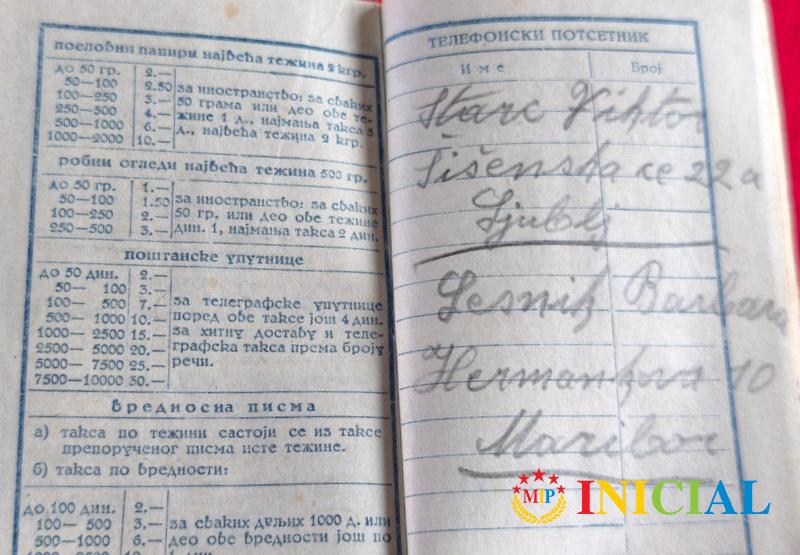 пословни папири највећа тежина 2 кгр.
до 50 гр. 2.—
50—100 2.50
100—250 3.—
250—500 4.—
500—1000 6.—
1000—2000 10.—
за иностранство: за сваких
50 грама или део ове те-
жине 1 д., најмања такса 3
д., највећа тежина 2 кгр.
робни огледи највећа тежина 500 гр.
до 50 гр. 1.—
50—100 1.50
100—250 2.—
250—500 3.—
за иностранство: за сваких
50 гр. или део ове тежине
дин. 1, најмања такса 2 дин.
поштанске упутнице
до 50 дин. 2.—
50— 100 3.—
100— 500 7.—
500— 1000 10.—
1000— 2500 15.—
2500— 5000 20.—
5000— 7500 25.—
7500—10000 30.—
за телеграфске упутнице
поред ове таксе још 4 дин.
за хитну доставу и теле-
графска такса према броју
речи.
вредносна писма
а) такса по тежини састоји се из таксе
препорученог писма исте тежине.
б) такса по вредности:
до 100 дин. 2.—
100— 500 3.—
500—1000 6.—
за сваких даљих 1000 д. или
део ове вредности још по
ТЕЛЕФОНСКИ ПОТСЕТНИК
Име Број
Starc Viktor
Šišenska ce 22 a
Ljublj
Lesnik Barbara
Hermankova 10
Maribor
MIP INICIAL